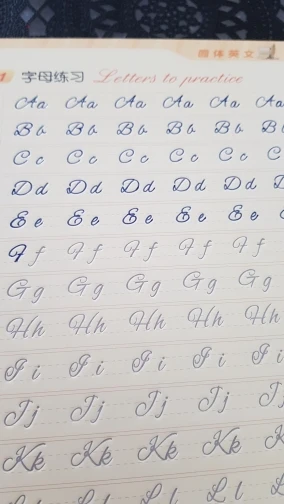 圆体英文
1 字母练习 Letters to practice
Aa Aa Aa Aa Aa Aa
Bb Bb Bb Bb Bb B
Cc Cc Cc Cc Cc C
Dd Dd Dd Dd Dd D
Ee Ee Ee Ee Ee
Ff Ff Ff Ff Ff
Gg Gg Gg Gg Gg
Hh Hh Hh Hh Hh
Ii Ii Ii Ii Ii
Jj Jj Jj Jj J
Kk Kk Kk Kk K
Ll Ll Ll L